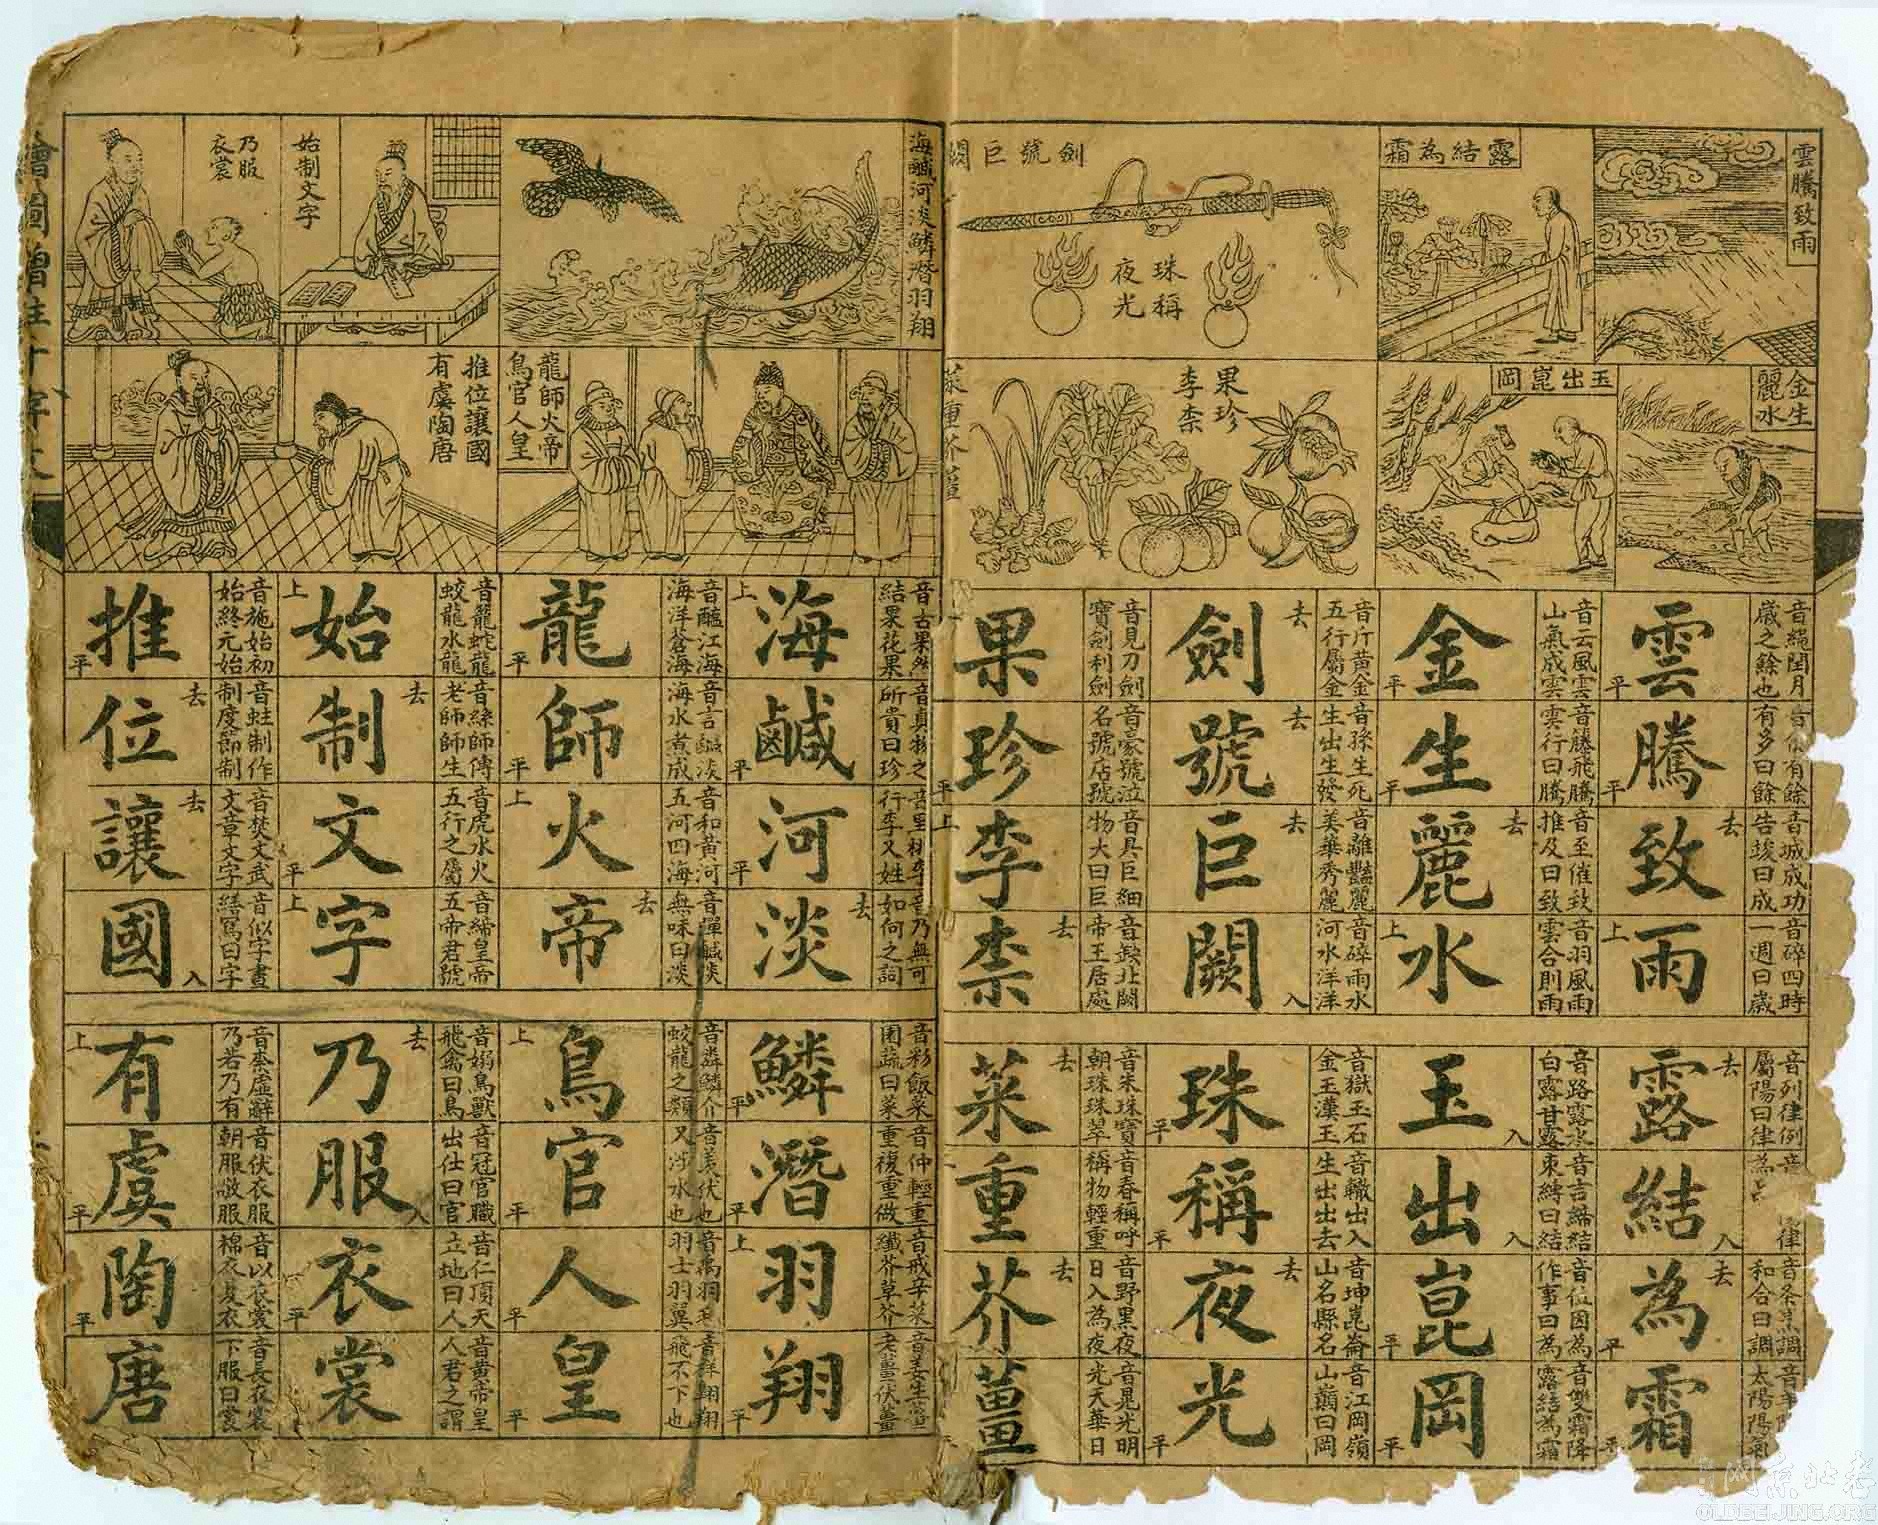 雲騰致雨
露結為霜
金生麗水
玉出崑岡
劍號巨闕
珠稱夜光
果珍李柰
菜重芥薑
音繩閏月 歲之餘也
有餘 有多曰餘
音城成功 告竣曰成
音碎四時 一週曰歲
雲騰致雨
音云風雲 山氣成雲
音籐飛騰 雲行曰騰
音至催致 推及曰致
音羽風雨 雲合則雨
金生麗水
音斤黃金 五行屬金
音孫生死 生出生發
音離豔麗 美華秀麗
音碎雨水 河水洋洋
劍號巨闕
音見刀劍 寶劍利劍
音豪號泣 名號店號
音具巨細 物大曰巨
音缺北闕 帝王居處
果珍李柰
音列律例 屬陽曰律
音条 調 和合曰調
太陽陽氣
露結為霜
音路露水 白露甘露
音吉締結 束縛曰結
音位因為 作事曰為
音雙霜降 露結為霜
玉出崑岡
音獄玉石 金玉漢玉
音轍出入 生出出去
音坤崑崙 山名縣名
音江岡嶺 山巔曰岡
珠稱夜光
音朱珠寶 朝珠珠翠
音春稱呼 稱物輕重
音野黑夜 日入為夜
音晃光明 光天華日
菜重芥薑
海鹹河淡鱗潛羽翔
始制文字
乃服衣裳
龍師火帝鳥官人皇
推位讓國有虞陶唐
音古果然 結果花果
音真物之 所貴曰珍
音里桃李 行李又姓
音乃無可 如何之詞
海鹹河淡
音醢江海 海洋蒼海
音言鹹淡 海水煮成
音和黃河 五河四海
音彈鹹淡 無味曰淡
龍師火帝
音籠蛇龍 蛟龍水龍
音絲師傅 老師師生
音虎水火 五行之屬
音締皇帝 五帝君號
始制文字
音施始初 始終元始
音蛀制作 制度節制
音焚文武 文章文字
音似字畫 繕寫曰字
推位讓國
音彩飯菜 園蔬曰菜
音仲輕重 重複重做
音戒辛菜 纖芥草芥
音姜生薑 老薑伏薑
鱗潛羽翔
音粦鱗介 蛟龍之類
伏也 又涉水也
音禹羽毛 羽士羽翼
音祥翱翔 飛不下也
鳥官人皇
音嫋鳥獸 飛禽曰鳥
音冠官職 出仕曰官
音仁頂天 立地曰人
音黃帝皇 人君之謂
乃服衣裳
音柰虛辭 乃若乃有
音伏衣服 朝服敬服
音以衣裳 棉衣夏衣
音長衣裳 下服曰裳
有虞陶唐
繪圖增註千字文
网京北老
OLDBEIJING.ORG